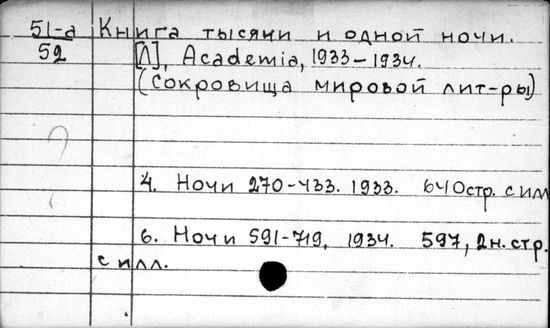 51-а Книга тысячи и одной ночи.
52 [Л], Academia, 1933-1934.
(Сокровища мировой лит-ры)
4. Ночи 270-433. 1933. 640стр. с илл
6. Ночи 591-719, 1934. 597, 2н.стр.
с илл.